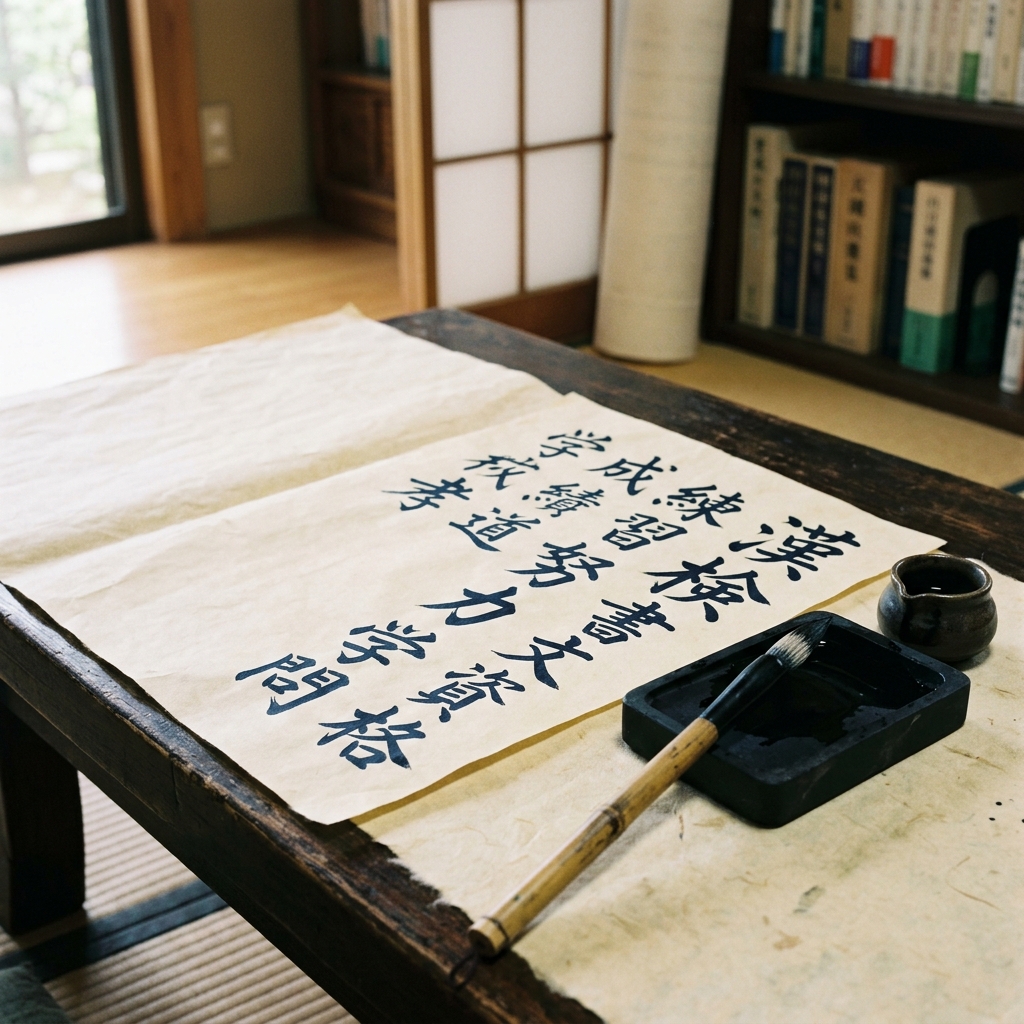 漢検書文資格
練習努力学問
成績道
学校孝